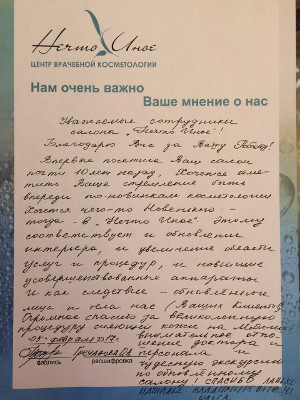 Нечто Иное
ЦЕНТР ВРАЧЕБНОЙ КОСМЕТОЛОГИИ
Нам очень важно
Ваше мнение о нас
Уважаемые сотрудники
салона „Нечто Иное"!
Благодарю Вас за Вашу Работу!
Впервые посетила Ваш салон
почти 10 лет назад. Хочется отме-
тить Ваше стремление быть
впереди по новинкам косметологии
Хочется чего-то Новенького -
тогда - в „Нечто Иное". Этому
соответствует и обновление
интерьера, и увеличение области
услуг и процедур, и новейшие
усовершенствованные аппараты
И как следствие - обновлённые
лица и тела нас (Ваших клиентов)
Огромное спасибо за великолепную
процедуру сияющей кожи на
05 февраля
внимательное отно-
шение доктора и
персонала и
чудесную экскурсию
по обновлённому
салону! СПАСИБО
подпись расшифровка